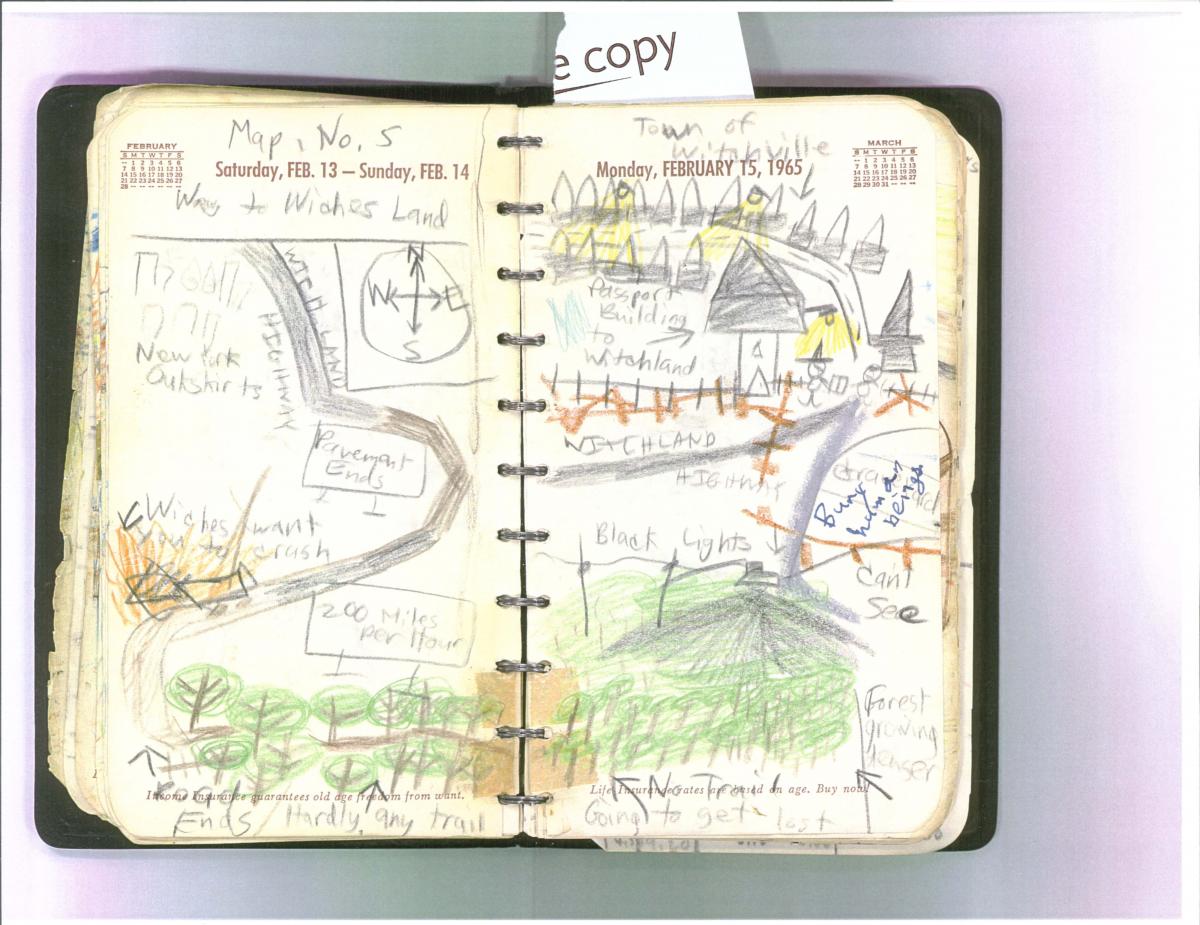 e copy
FEBRUARY
S M T W T F S
-- 1 2 3 4 5 6
7 8 9 10 11 12 13
14 15 16 17 18 19 20
21 22 23 24 25 26 27
28 -- -- -- -- -- --
Map, No. 5
Saturday, FEB. 13 — Sunday, FEB. 14
Way to Wiches Land
WITCH LAND
HIGHWAY
N
W E
S
New York
Outskirts
Pavement
Ends
Wiches want
you to crash
200 Miles
per Hour
Income Insurance guarantees old age freedom from want.
road
Ends Hardly any trail
Town of
Witchville
Monday, FEBRUARY 15, 1965
MARCH
S M T W T F S
-- 1 2 3 4 5 6
7 8 9 10 11 12 13
14 15 16 17 18 19 20
21 22 23 24 25 26 27
28 29 30 31 -- -- --
Passport
Building
to
Witchland
WITCHLAND
HIGHWAY
Bury
human
beings
Black Lights
Can't
See
Forest
growing
denser
Life Insurance rates are based on age. Buy now!
No Trail
Going to get lost